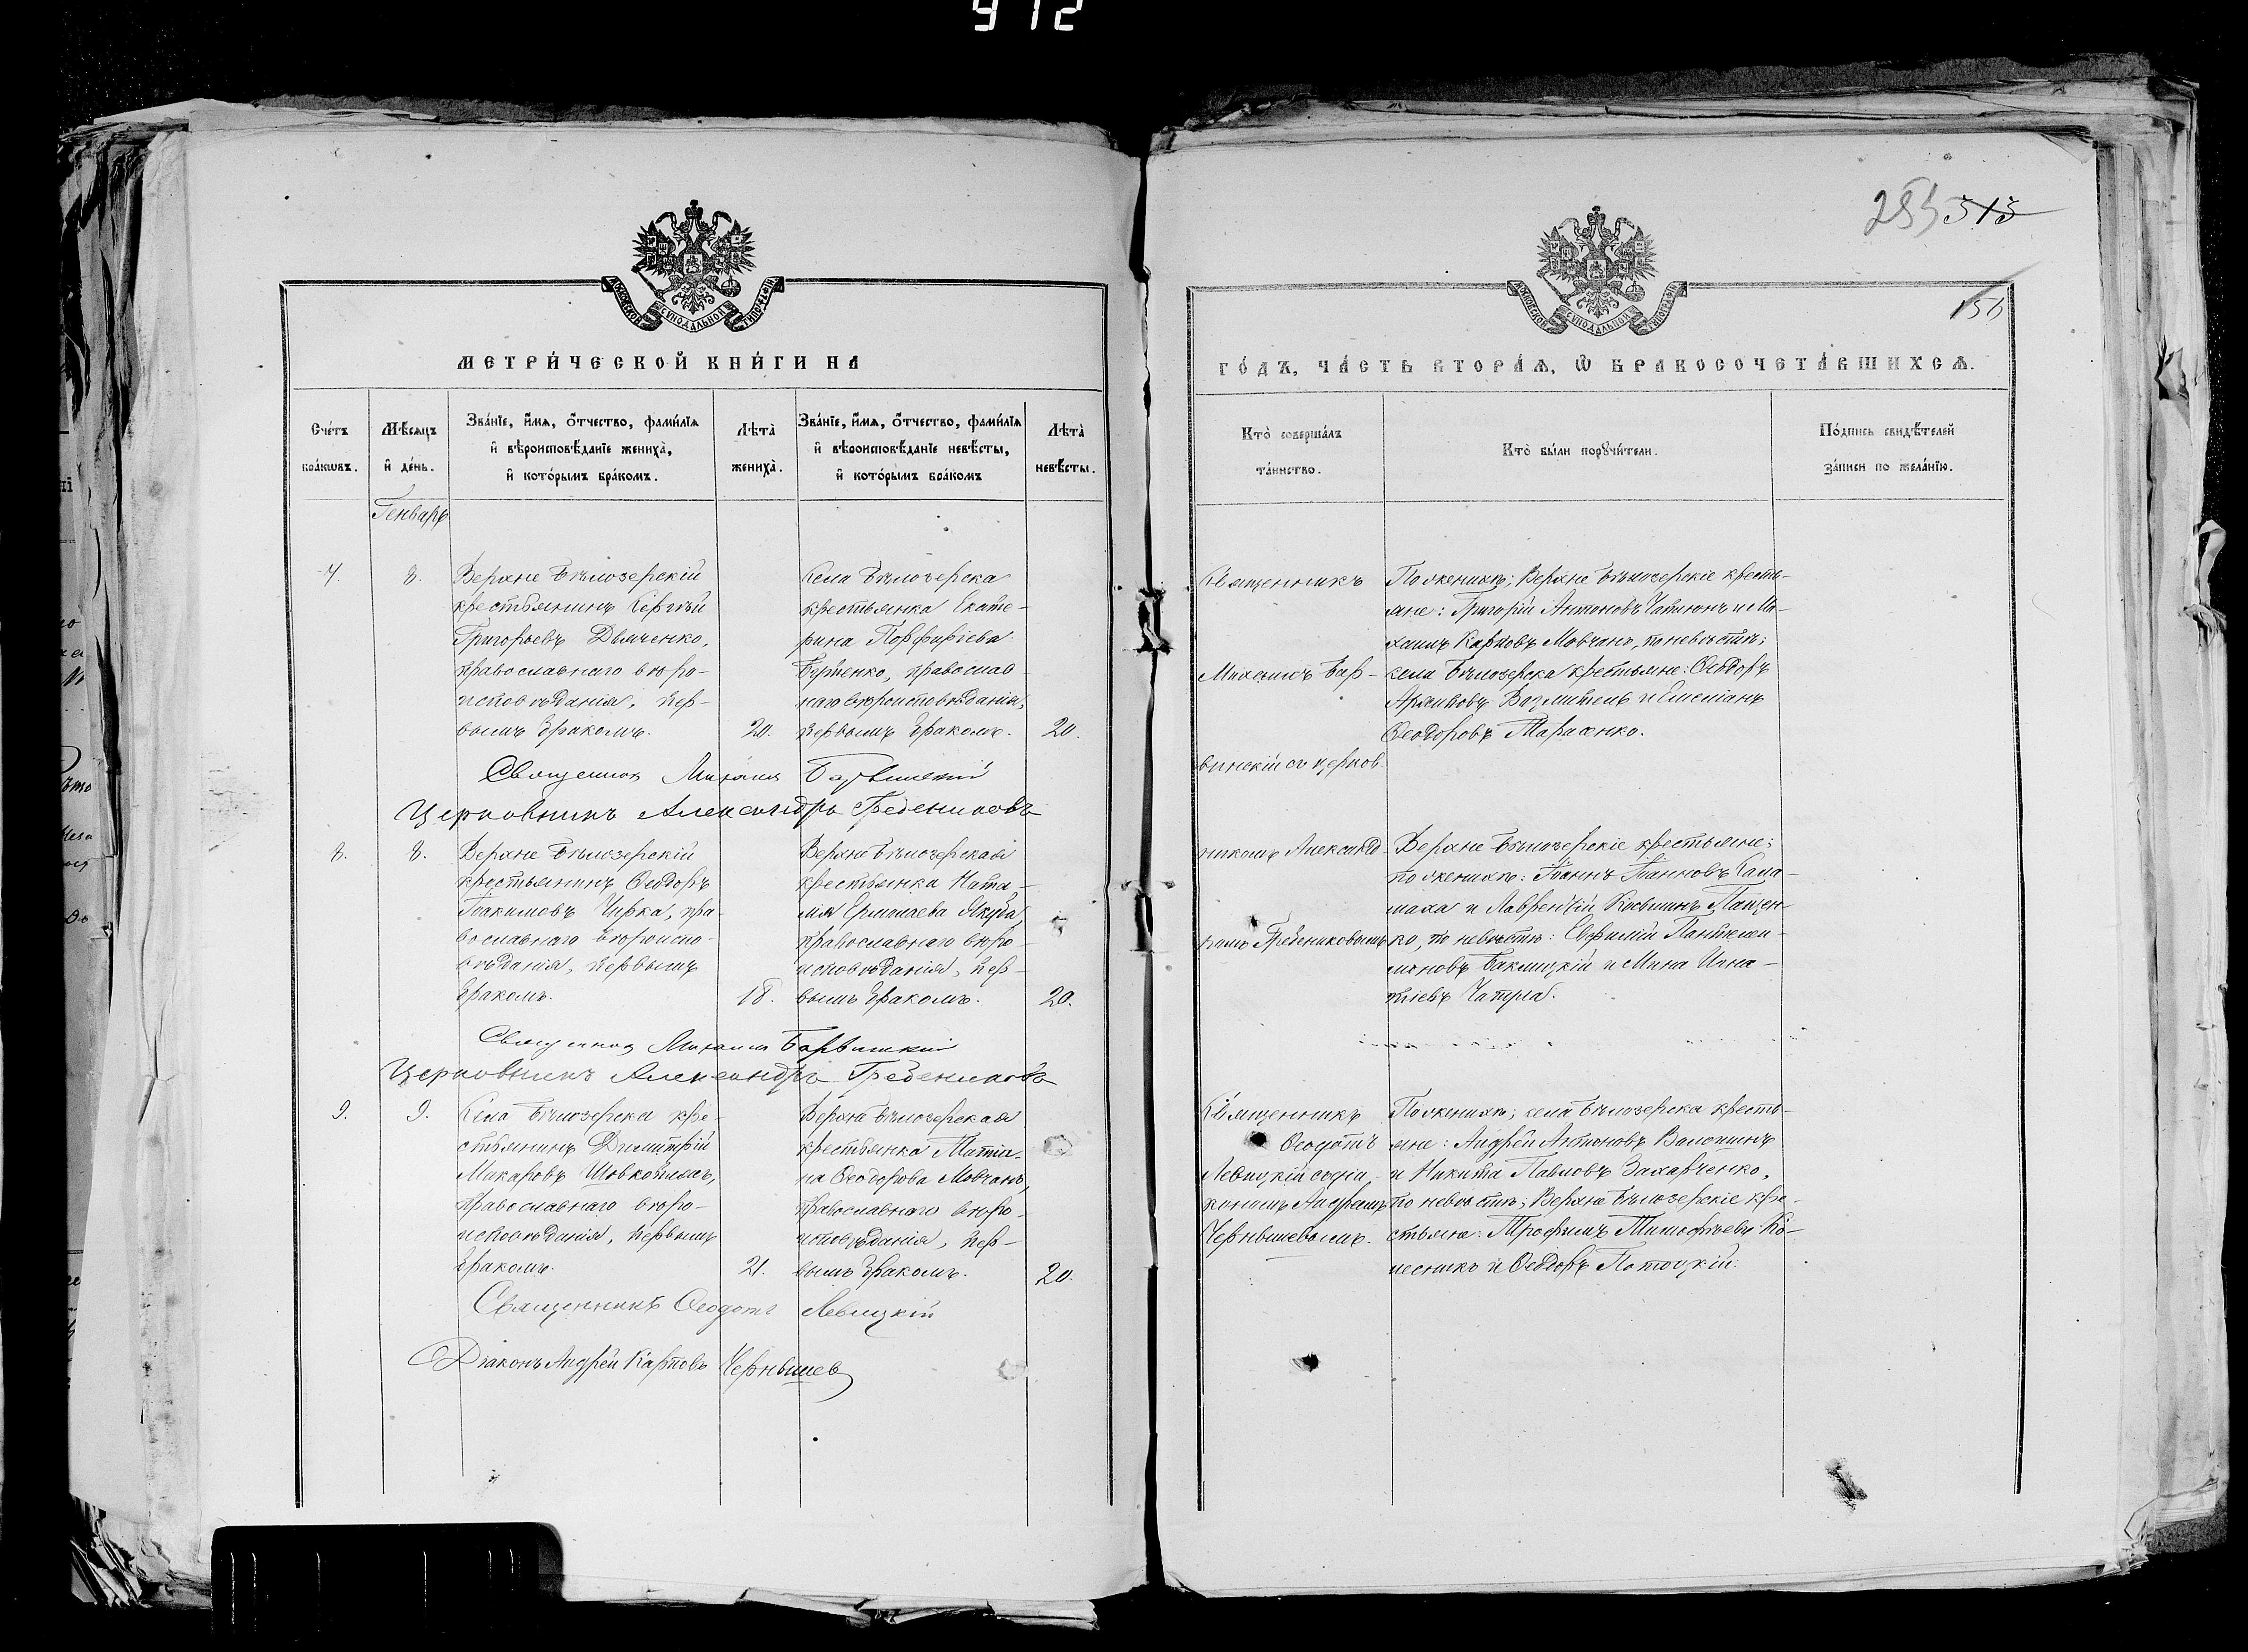 912
253 313
156
МОСКОВСКОЙ СѴНОДАЛЬНОЙ ТИПОГРАФІИ
МЕТРИ́ЧЕСКОЙ КНИ́ГИ НА
Сче́тъ бра́кѡвъ.
Мѣ́сяцъ и҆ де́нь.
Зва́нїе, и҆́мѧ, ѻ҆́тчество, фами́лїѧ
и҆ вѣроисповѣ́данїе жениха̀,
и҆ кото́рымъ бра́комъ.
Лѣта̀ жениха̀.
Зва́нїе, и҆́мѧ, ѻ҆́тчество, фами́лїѧ
и҆ вѣроисповѣ́данїе невѣ́сты,
и҆ кото́рымъ бра́комъ
Лѣта̀ невѣ́сты.
Генварь
7.
8.
Верхне Бѣлозерскій
крестьянинъ Сергѣй
Григорьевъ Демченко,
православнаго вѣро-
исповѣданія, пер-
вымъ бракомъ.
20.
Села Бѣлозерска
крестьянка Екате-
рина Порфиріева
православ
наго вѣроисповѣданія,
первымъ бракомъ.
20.
Священник Михаил Барвинский
Церковникъ Александръ Гребениковъ
8.
8.
Верхне Бѣлозерскій
крестьянинъ Ѳеодоръ
Іоакимовъ Чирка, пра-
вославнаго вѣроиспо-
вѣданія, первымъ
бракомъ.
18.
Верхне Бѣлозерская
крестьянка Ната-
лія Ермолаева Якуба,
православнаго вѣро-
исповѣданія, пер-
вымъ бракомъ.
20.
Священник Михаил Барвинский
Церковникъ Александръ Гребениковъ
9.
9.
Села Бѣлозерска кре-
стьянинъ Димитрій
Макаровъ Шовкоплясъ,
православнаго вѣро-
исповѣданія, первымъ
бракомъ.
21.
Верхне Бѣлозерская
крестьянка Татіа-
на Ѳеодорова Мовчанъ,
православнаго вѣро-
исповѣданія, пер-
вымъ бракомъ.
20.
Священникъ Ѳеодотъ Левицкій
Діаконъ Андрей Карповъ Чернышев
ГО́ДЪ, ЧА́СТЬ ВТОРА́Ѧ, Ѽ БРАКОСОЧЕТА́ВШИХСѦ.
Кто̀ соверша́лъ
та́инство.
Кто̀ бы́ли порꙋчи́тели.
По́дпись свидѣ́телей
за́писи по жела́нїю.
Священникъ
Михаилъ Бар-
винскій съ церков-
никомъ Александ-
ромъ Гребениковымъ
По женихѣ; Верхне Бѣлозерскіе кресть-
яне: Григорій Антоновъ и Ми-
хаилъ Карповъ Мовчанъ, по невѣстѣ;
села Бѣлозерска крестьяне: Ѳеодоръ
Архиповъ и Емеліанъ
Ѳеодоровъ Тарасенко.
Верхне Бѣлозерскіе крестьяне;
по женихѣ: Іоаннъ Іоанновъ Сала-
маха и Лаврентій Косьминъ Пацен-
ко, по невѣстѣ: Евфимій Пантелей-
моновъ Баклицкій и Мина Игна-
тіевъ Чапрга.
Священникъ
Ѳеодотъ
Левицкій со діа-
кономъ Андреемъ
Чернышевымъ.
По женихѣ; села Бѣлозерска кресть-
яне: Андрей Антоновъ Волошинъ
и Никита Павловъ Захарченко,
по невѣстѣ; Верхне Бѣлозерскіе кре-
стьяне: Трофимъ Тимофѣевъ Ко-
лесникъ и Ѳеодоръ Потоцкій.